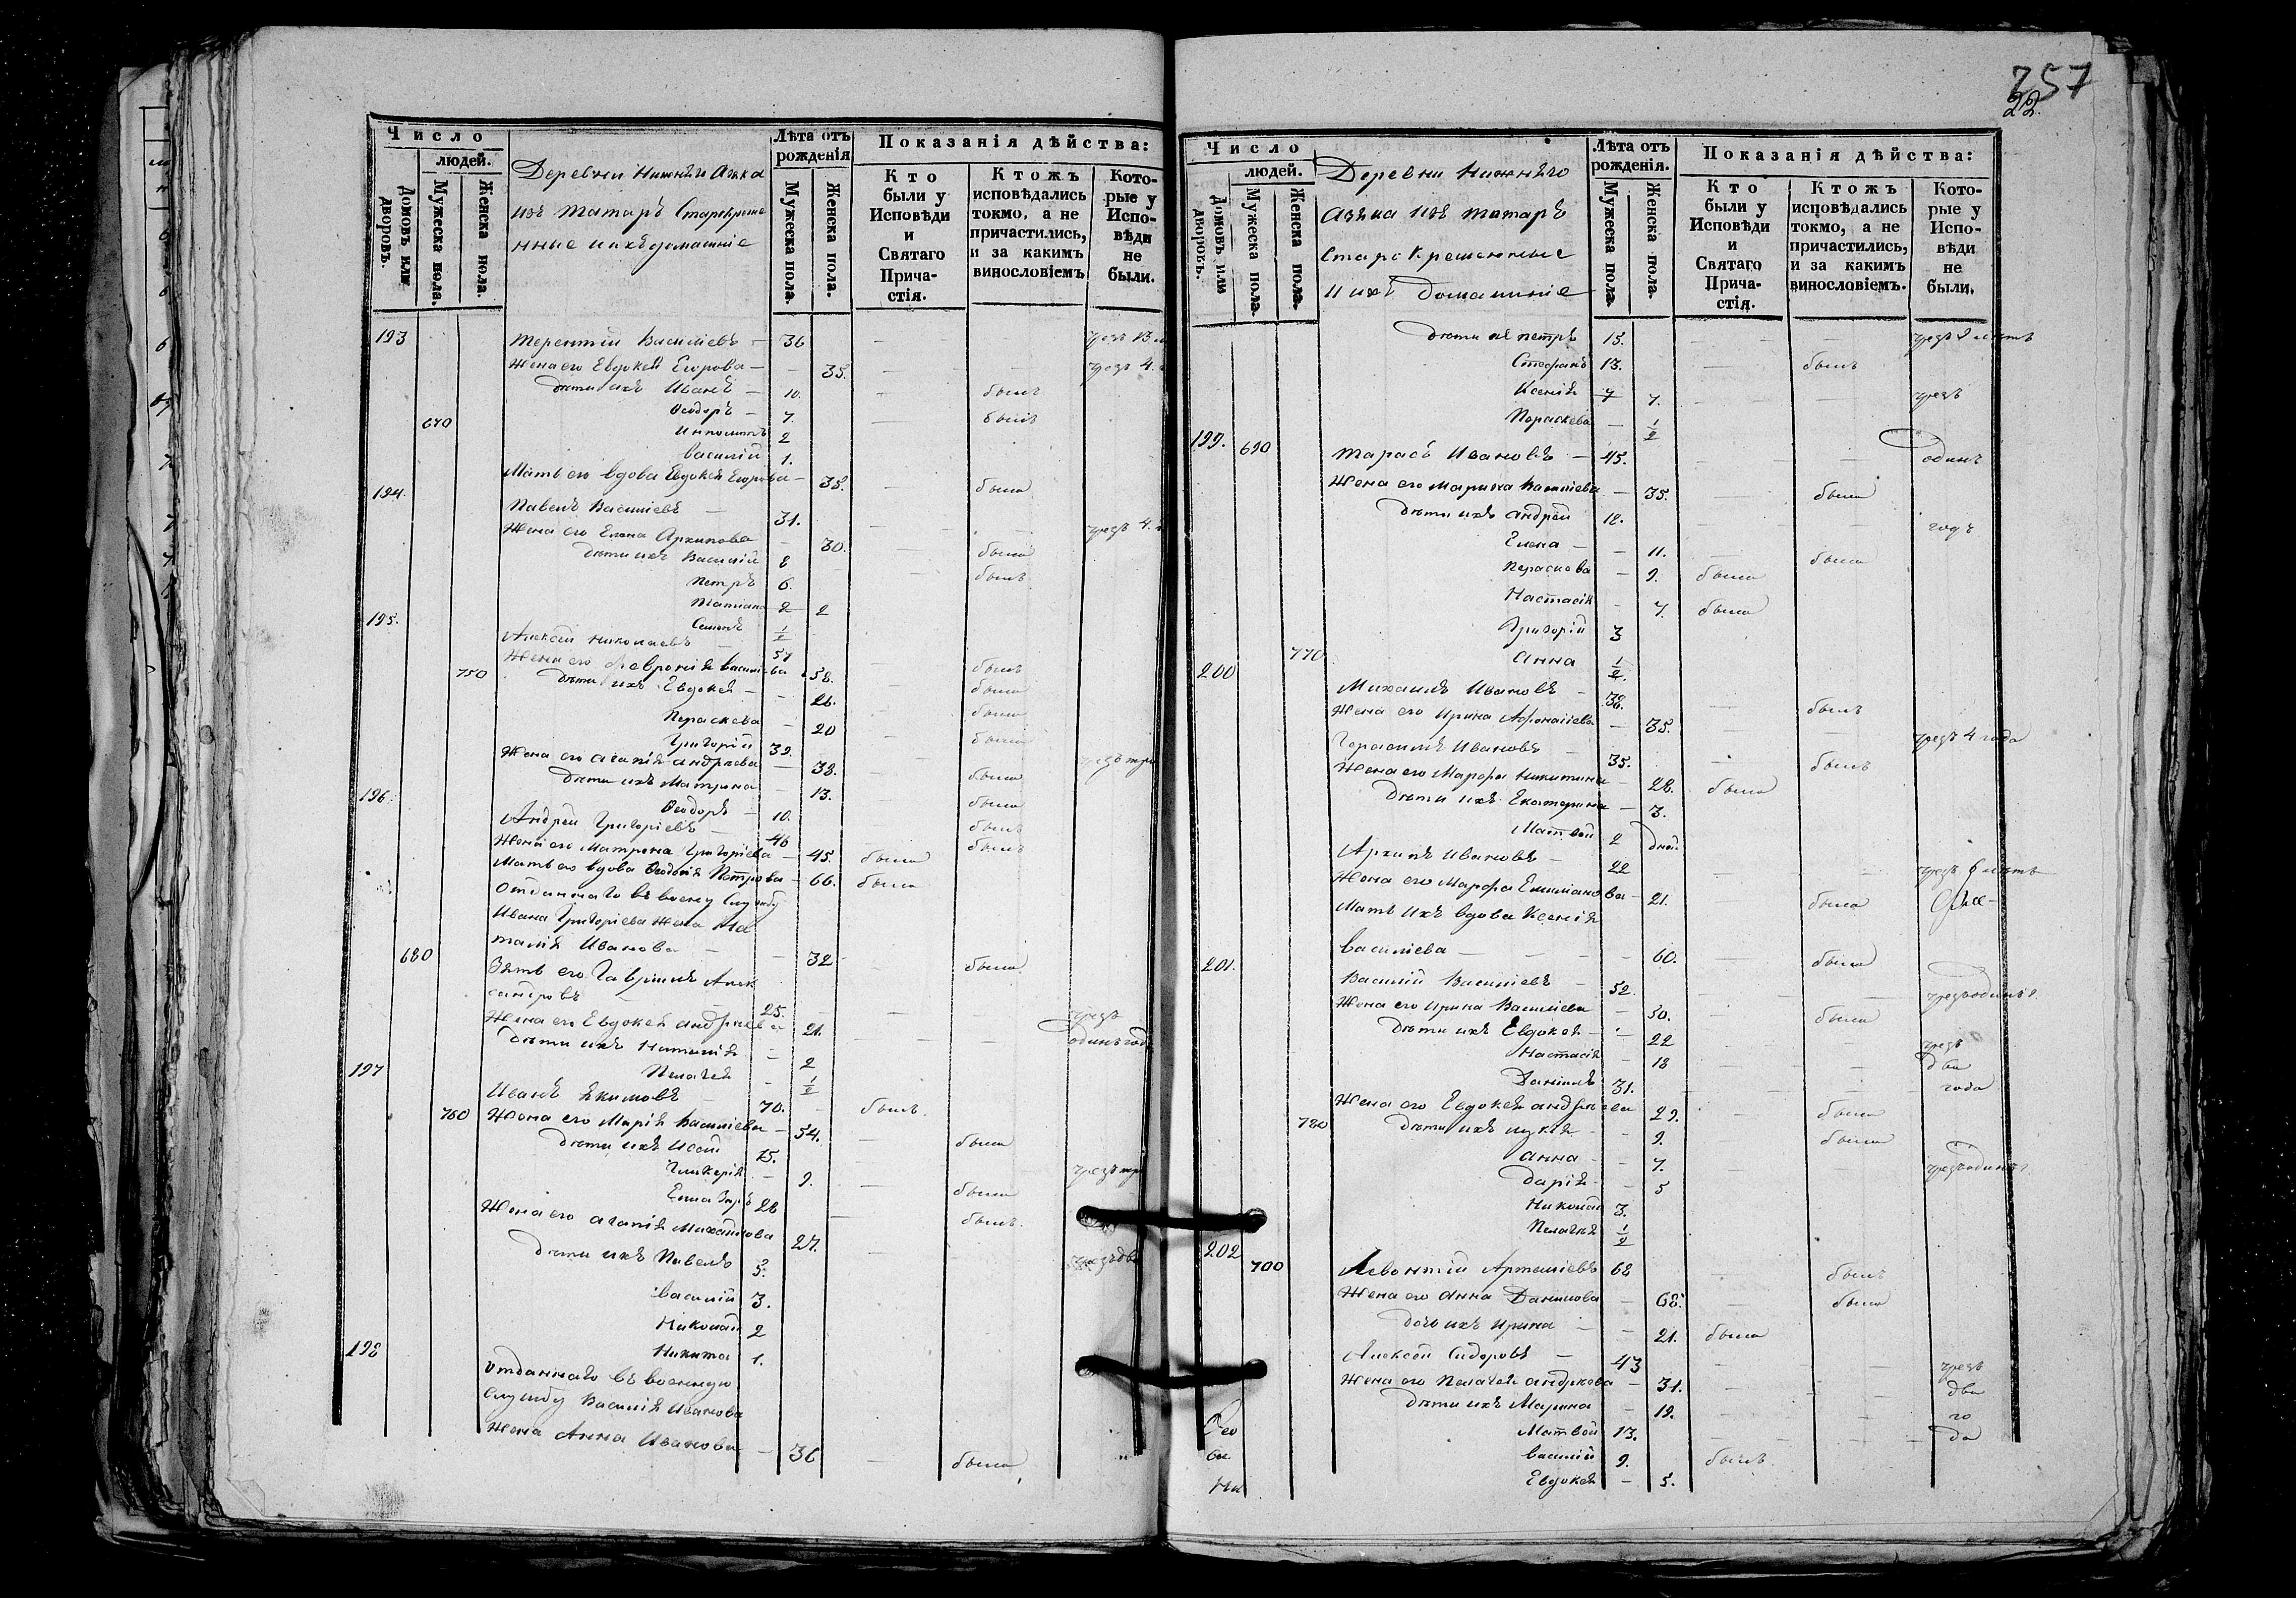 757
22.
Число
людей.
Домовъ или дворовъ.
Мужеска пола.
Женска пола.
Деревни Нижняго Азяка
изъ татаръ Старокреще
нные и ихъ домашніе
Лѣта отъ рожденія
Мужеска пола.
Женска пола.
Показанія дѣйства:
Кто были у Исповѣди и Святаго Причастія.
Ктожъ исповѣдались токмо, а не причастились, и за какимъ винословіемъ
Которые у Исповѣди не были.
193 Терентій Васильевъ — 36 — —
Жена его Евдокея Егорова — — 35. — — чрезъ 4.
Дѣти ихъ Иванъ — 10. — былъ
Ѳеодоръ — 7. былъ
670 2
Василій 1.
Мать его вдова Евдокея Егорова — 38. — была
194. Павелъ Васильевъ — 31. — —
чрезъ 4.
Жена его Елена Архипова — 30. — была
Дѣти ихъ Василій 8 — былъ
Петръ 6.
Татіана 2 2
195. Семенъ 1/2
Алексей Николаевъ 57 — былъ
Жена его Февронія Васильева 58. — была
750 Дѣти ихъ Евдокея — — 26. — была
Параскева — 20 — была
Григорій 32.
чрезъ три
Жена его Агапія Андреева — 38. — была
Дѣти ихъ Матрина — 13. — была
196. Ѳеодоръ — 10. былъ
Андрей Григоріевъ — 46 былъ
Жена его Матрона Григоріева — 45. была
Мать его вдова Ѳеодосія Петрова — 66. была
Отданнаго въ воену службу
Ивана Григоріева жена На
талія Иванова — — 32 — была
680 Зять его Гаврилъ Алек
сандровъ — 25. — — чрезъ
Жена его Евдокея Андреева 21. — — одинъ год
Дѣти ихъ Наталія — 2
197 Пелагея — 1/2
Иванъ Якимовъ — 70. — былъ.
760 Жена его Марія Васильева — 54. — была
Дѣти ихъ Исай 15.
чрезъ три
Гликерія — 9. — была
Елиазаръ 28 — былъ.
Жена его Агапія Михайлова 27. —
чрезъ два
Дѣти ихъ Павелъ 5.
Василій 3.
Николай 2
198 Никита 1.
Отданнаго въ военную
службу Василія Иванова
жена Анна Иванова — 36 — была
Число
людей.
Домовъ или дворовъ.
Мужеска пола.
Женска пола.
Деревни Нижняго
Азяка изъ татаръ
Старокрещенные
и ихъ домашніе
Лѣта отъ рожденія.
Мужеска пола.
Женска пола.
Показанія дѣйства:
Кто были у Исповѣди и Святаго Причастія.
Ктожъ исповѣдались токмо, а не причастились, и за какимъ винословіемъ.
Которые у Исповѣди не были.
Дѣти ея Петръ 15. — —
Стефанъ 13. — былъ
Ксенія 7 7. — — чрезъ
Параскева — 1/2
199. 690 Тарасъ Ивановъ — 45. — — одинъ
Жена его Марина Васильева — 35. — была
Дѣти ихъ Андрей 18. — — годъ
Елена — — 11. — была
Параскева — 9. была
Настасія — 7. была
Григорій 3
770 Анна 1/2.
200 Михаилъ Ивановъ — 38. — былъ
Жена его Ирина Афонасіева — 35. — — чрезъ 4 года
Герасимъ Ивановъ — 35. — былъ
Жена его Марфа Никитина — 28. была
Дѣти ихъ Екатерина — 3.
Матвей 2 дней.
Архипъ Ивановъ — 22 — — чрезъ 6 лѣтъ
Жена его Марфа Емилианова — 21. — была
Мать ихъ вдова Ксенія
Васильева — — — — 60. — была
201. Василій Васильевъ — 52. — — чрезъ одинъ г.
Жена его Ирина Васильева — 50. — была
Дѣти ихъ Евдокея — — 22 чрезъ
Настасія — 18 — — два
Даніилъ 31. — — года
Жена его Евдокея Андреева 29. — была
780 Дѣти ихъ Лукія — — 9. — была
Анна — — 7. — — чрезъ одинъ г.
Дарія — — 5
Николай 3.
Пелагея 1/2
202 700 Левонтій Артеміевъ 68 — былъ
Жена его Анна Данилова — 68. — была
Дочь ихъ Ирина — — 21. была
Алексей Сидоровъ — 43 — — чрезъ
Жена его Пелагея Андреева — 31. — — два
Дѣти ихъ Марина — 18. — — го
Матвей 13. — — да
Василій 9. былъ.
Евдокея — 5.